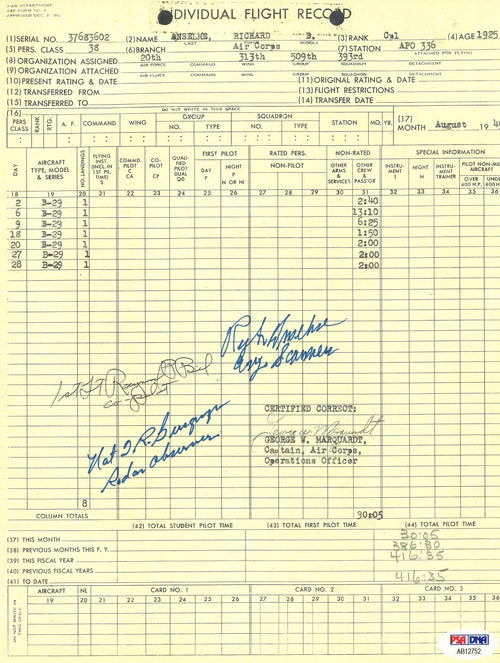 WAR DEPARTMENT
AAF FORM NO. 5
APPROVED DEC. 7
INDIVIDUAL FLIGHT RECORD
(1)SERIAL NO. 37683602 (2)NAME ANSELME, RICHARD B. (3)RANK Cpl (4)AGE 1925
LAST FIRST MIDDLE
(5) PERS. CLASS 38 (6)BRANCH Air Corps (7)STATION APO 336
(8)ORGANIZATION ASSIGNED 20th 313th 509th 393rd ATTACHED FOR FLYING
AIR FORCE COMMAND WING GROUP SQUADRON DETACHMENT
(9)ORGANIZATION ATTACHED
AIR FORCE COMMAND WING GROUP SQUADRON DETACHMENT
(10)PRESENT RATING & DATE (11)ORIGINAL RATING & DATE
(12)TRANSFERRED FROM (13)FLIGHT RESTRICTIONS
(15)TRANSFERRED TO (14)TRANSFER DATE
DO NOT WRITE IN THIS SPACE
(16) PERS CLASS RANK RTG. A. F. COMMAND WING GROUP NO. TYPE SQUADRON NO. TYPE STATION MO. YR. (17) MONTH August 19
DAY AIRCRAFT TYPE, MODEL & SERIES NO. LANDINGS FLYING INST. (INCL IN 1ST PIL. TIME) S COMMD. PILOT C CA CO-PILOT CP QUALIFIED PILOT DUAL QD FIRST PILOT DAY P NIGHT P N OR NI RATED PERS. NON-PILOT NON-RATED OTHER ARMS & SERVICES OTHER CREW & PASS'GR SPECIAL INFORMATION INSTRUMENT I NIGHT N INSTRUMENT TRAINER PILOT NON-MIL AIRCRAFT OVER 400 H.P. UNDER 400 H.
18 19 20 21 22 23 24 25 26 27 28 29 30 31 32 33 34 35 36
2 B-29 1 2:40
6 B-29 1 13:10
9 B-29 1 6:25
18 B-29 1 1:50
20 B-29 1 2:00
27 B-29 1 2:00
28 B-29 1 2:00
Eng. Scanner
1st Lt
Co-Pilot
Radar Observer
CERTIFIED CORRECT:
George W. Marquardt
GEORGE W. MARQUARDT,
Captain, Air Corps,
Operations Officer
8
COLUMN TOTALS 30:05
(42) TOTAL STUDENT PILOT TIME (43) TOTAL FIRST PILOT TIME (44) TOTAL PILOT TIME
(37) THIS MONTH 30:05
(38) PREVIOUS MONTHS THIS F. Y.
(39) THIS FISCAL YEAR 416:35
(40) PREVIOUS FISCAL YEARS
(41) TO DATE 416:35
AIRCRAFT NL CARD NO. 1 CARD NO. 2 CARD NO. 3
DO NOT WRITE IN THIS SPACE 19 20 21 22 23 24 25 26 27 28 29 30 31 32 33 34 35 36
PSA DNA
AB12752